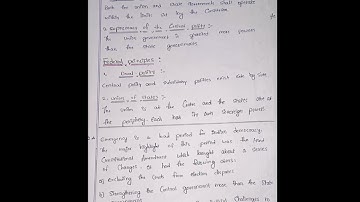 both the union and state governments shall operate
within the limits set by the Constitution
2. Supremacy of the Central polity :-
The union government is granted more powers
than the state governments.
Federal principles :-
1. Dual polity :-
Central polity and subsidiary polities exist side by side.
2. Union of states :-
The union is at the Centre and the states are at
the periphery each has its own sovereign powers.
Emergency is a bad period for Indian democracy.
The major highlight of this period was the
Constitutional Amendment which brought about a series
of Changes. It had the following aims:
a) Excluding the Courts from election disputes
b) Strengthening the Central government more than the State
Challenges to